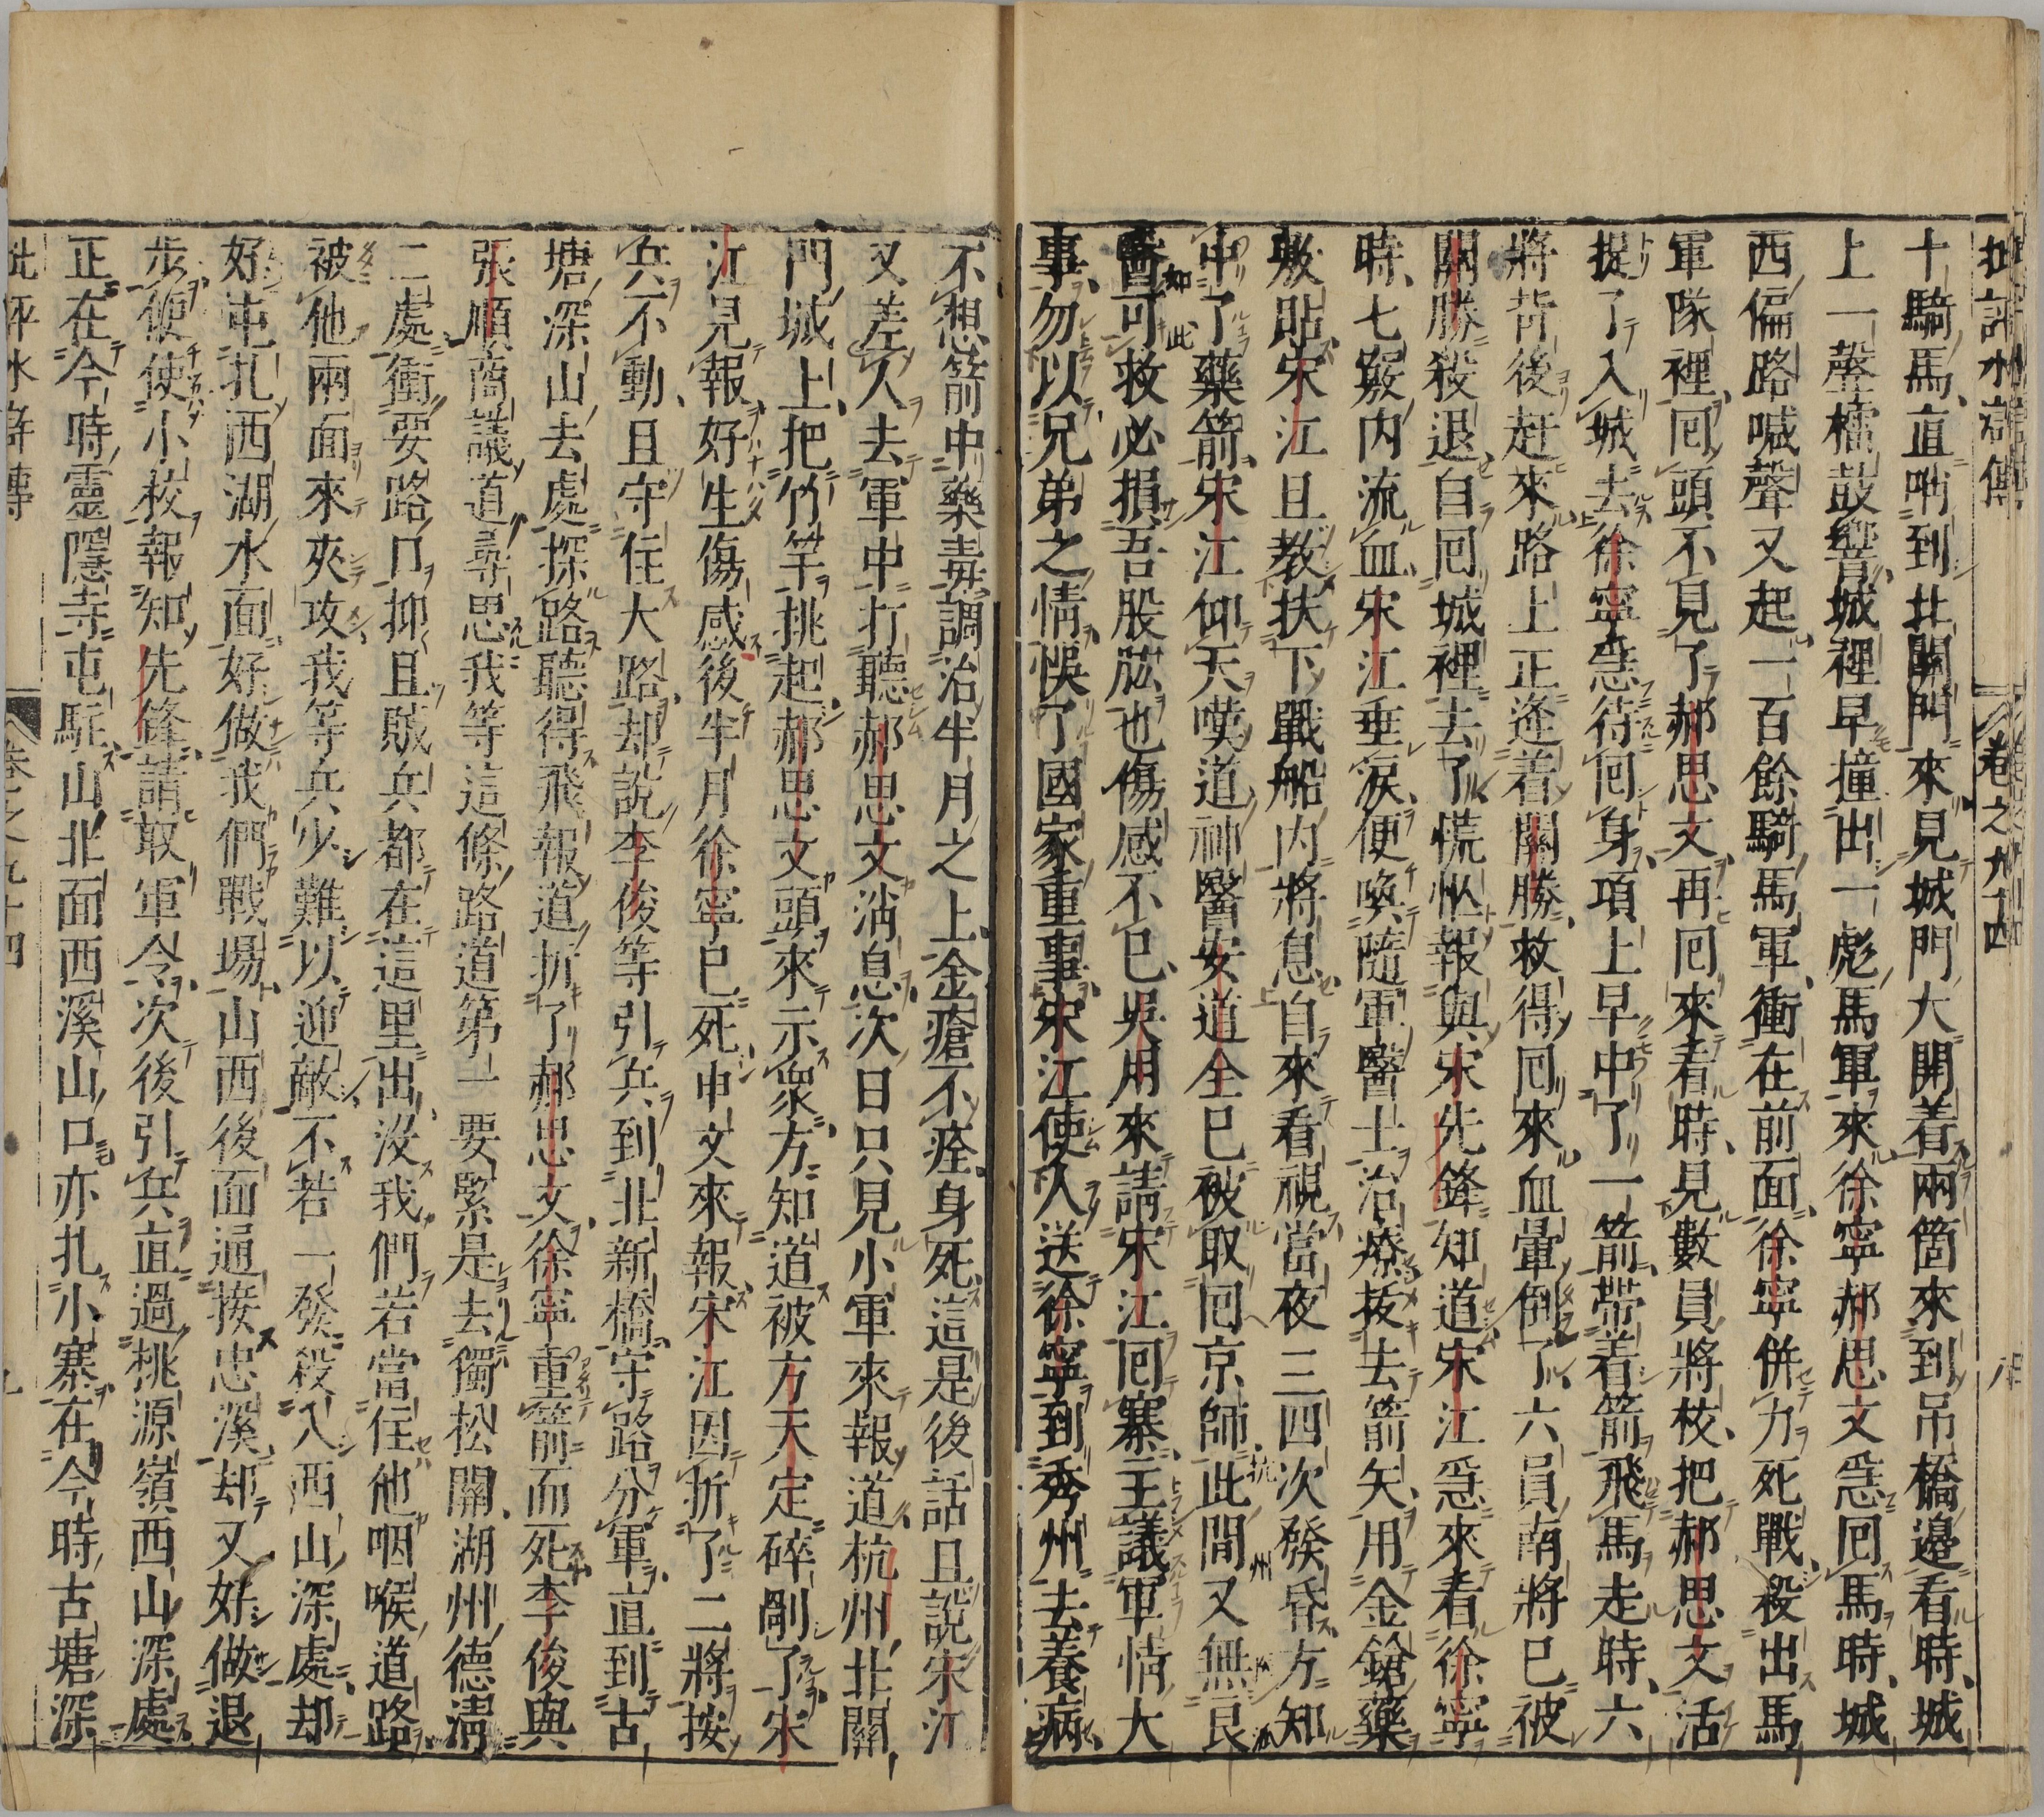 批評水滸傳
卷之九十四
十騎馬直哨到北關門來見城門大開着兩箇來到吊橋邊看時城
上一聲擂鼓響城裡早撞出一彪馬軍來徐寧郝思文急囘馬時城
西偏路喊聲又起一百餘騎馬軍衝在前面徐寧併力死戰殺出馬
軍隊裡囘頭不見了郝思文再囘來看時見數員將校把郝思文活
捉了入城去徐寧急待囘身項上早中了一箭帶着箭飛馬走時六
將背後赶來路上正逢着關勝救得囘來血暈倒了六員南將已被
關勝殺退自囘城裡去了慌忙報與宋先鋒知道宋江急來看徐寧
時七竅内流血宋江垂淚便喚隨軍醫士治療拔去箭矢用金鎗藥
敷貼宋江且教扶下戰船内將息自來看視當夜三四次發昏方知
中了藥箭宋江仰天嘆道神醫安道全已被取囘京師此間又無良
醫可救必損吾股肱也傷感不已吳用來請宋江囘寨主議軍情大
事勿以兄弟之情悞了國家重事宋江使人送徐寧到秀州去養病
不想箭中藥毒調治半月之上金瘡不痊身死這是後話且說宋江
又差人去軍中打聽郝思文消息次日只見小軍來報道杭州北關
門城上把竹竿挑起郝思文頭來示衆方知道被方天定碎剮了宋
江見報好生傷感後半月徐寧已死申文來報宋江因折了二將按
兵不動且守住大路却說李俊等引兵到北新橋守路分軍直到古
塘深山去處探路聽得飛報道折了郝思文徐寧重箭而死李俊與
張順商議道尋思我等這條路道第一要緊是去獨松關湖州德清
二處衝要路口抑且賊兵都在這里出沒我們若當住他咽喉道路
被他兩面來夾攻我等兵少難以迎敵不若一發殺入西山深處却
好屯扎西湖水面好做我們戰場山西後面通接忠溪却又好做退
步便使小校報知先鋒請取軍令次後引兵直過桃源嶺西山深處
正在今時靈隱寺屯駐山北面西溪山口亦扎小寨在今時古塘深
批評水滸傳
卷之九十四